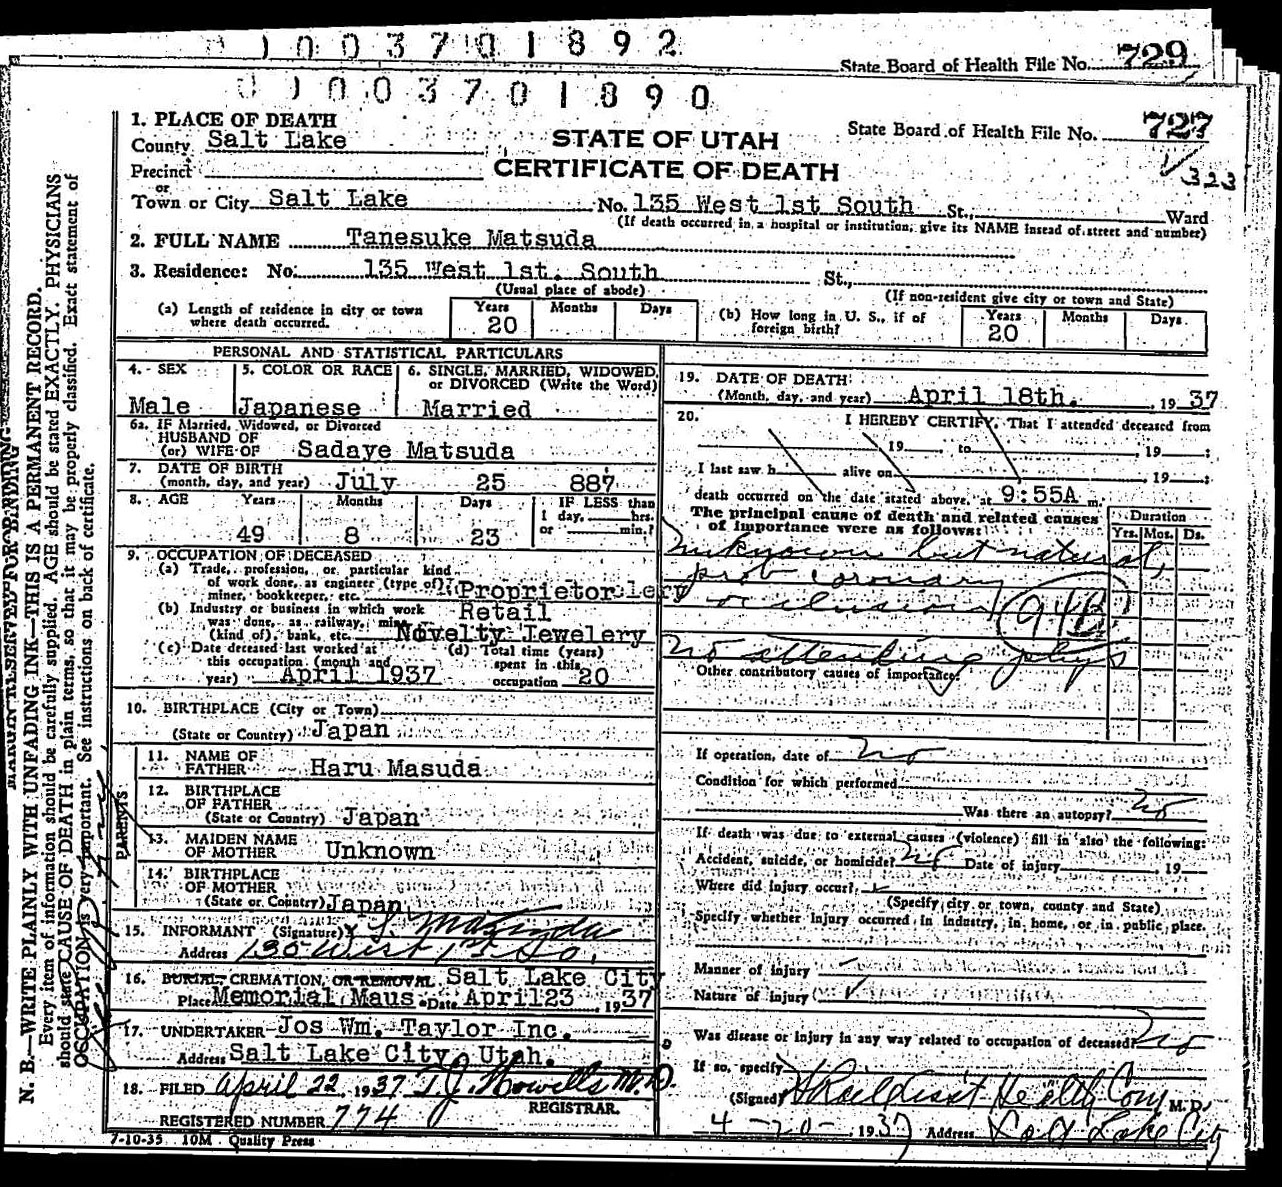 0 1 0 0 3 7 0 1 8 9 2
State Board of Health File No. 729
0 1 0 0 3 7 0 1 8 9 0
1. PLACE OF DEATH
County Salt Lake
STATE OF UTAH
CERTIFICATE OF DEATH
State Board of Health File No. 727
323
Precinct
or
Town or City Salt Lake No. 135 West 1st South St., Ward
(If death occurred in a hospital or institution, give its NAME insead of street and number)
2. FULL NAME Tanesuke Matsuda
3. Residence: No. 135 West 1st. South St.,
(Usual place of abode) (If non-resident give city or town and State)
(a) Length of residence in city or town where death occurred. Years 20 Months Days
(b) How long in U. S., if of foreign birth? Years 20 Months Days
PERSONAL AND STATISTICAL PARTICULARS
4. SEX Male
5. COLOR OR RACE Japanese
6. SINGLE, MARRIED, WIDOWED, or DIVORCED (Write the Word) Married
6a. IF Married, Widowed, or Divorced
HUSBAND OF
(or) WIFE OF Sadaye Matsuda
7. DATE OF BIRTH
(month, day, and year) July 25 887
8. AGE Years Months Days IF LESS than
1 day, hrs.
or min.?
49 8 23
9. OCCUPATION OF DECEASED
(a) Trade, profession, or particular kind
of work done, as engineer (type of)?
miner, bookkeeper, etc. Proprietor
(b) Industry or business in which work Retail
was done, as railway, mine
(kind of), bank, etc. Novelty Jewelery
(c) Date deceased last worked at
this occupation (month and
year) April 1937
(d) Total time (years)
spent in this
occupation 20
10. BIRTHPLACE (City or Town)
(State or Country) Japan
PARENTS
11. NAME OF
FATHER Haru Masuda
12. BIRTHPLACE
OF FATHER
(State or Country) Japan
13. MAIDEN NAME
OF MOTHER Unknown
14. BIRTHPLACE
OF MOTHER
(State or Country) Japan
15. INFORMANT (Signature)
Address 135 West 1st So.
16. BURIAL, CREMATION, OR REMOVAL Salt Lake City
Place Memorial Maus. Date April 23 1937
17. UNDERTAKER Jos Wm. Taylor Inc.
Address Salt Lake City, Utah.
18. FILED April 22 1937 T.J. Howells M.D.
REGISTRAR.
REGISTERED NUMBER 774
7-10-35 10M Quality Press
19. DATE OF DEATH
(Month, day, and year) April 18th. 1937
20. I HEREBY CERTIFY, That I attended deceased from
19 to , 19 :
I last saw h alive on 19 :
death occurred on the date stated above, at 9:55A m.
The principal cause of death and related causes
of importance were as follows:
Duration
Yrs. Mos. Ds.
unknown but natural,
prob coronary
occlusion
94B
No attending phys
Other contributory causes of importance:
If operation, date of no
Condition for which performed
Was there an autopsy? no
If death was due to external causes (violence) fill in also the following:
Accident, suicide, or homicide? no Date of injury , 19
Where did injury occur?
(Specify city or town, county and State)
Specify whether injury occurred in industry, in home, or in public place.
Manner of injury
Nature of injury
Was disease or injury in any way related to occupation of deceased? no
If so, specify
(Signed) Health Com M.D.
4-20- 1937 Address Salt Lake City
MARGIN RESERVED FOR BINDING
N. B.—WRITE PLAINLY WITH UNFADING INK—THIS IS A PERMANENT RECORD.
Every item of information should be carefully supplied. AGE should be stated EXACTLY. PHYSICIANS
should state CAUSE OF DEATH in plain terms, so that it may be properly classified. Exact statement of
OCCUPATION is very important. See instructions on back of certificate.